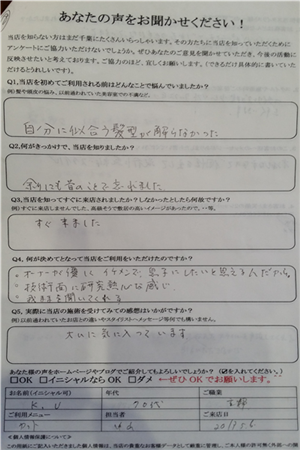 あなたの声をお聞かせください！
当店を知らない方はまだ千葉にたくさんいらっしゃいます。その方たちに当店を知っていただくために
アンケートにご協力いただけないでしょうか。ぜひあなたのご意見をお聞かせていただき、今後の活動に
反映させたいと考えております。ご協力のほど、宜しくお願いします。（できるだけ具体的に書いていた
だけるとうれしいです）。
Q1,当店を初めてご利用される前はどんなことで悩んでいましたか？
自分に似合う髪型が解らなかった
Q2,何がきっかけで、当店を知りましたか？
余りにも昔のことで忘れました
Q3,当店を知ってすぐに来店されましたか？しなかったとしたら何故ですか？
すぐ来ました
Q4, 何が決めてとなって当店をご利用をいただけたのですか？
・オーナーが優しくイケメンで、息子にしたいと思える人だから。
・技術面に研究熱心な感じ
Q5, 実際に当店の施術を受けてみての感想はいかがですか？
大いに気に入っています
あなた様の声をホームページやブログでご紹介してもよろしいでしょうか？
□OK □イニシャルならOK □ダメ ←ぜひOKでお願いします。
お名前(イニシャル可) 年代 ご職業
K.U 70代 主婦
ご利用メニュー 担当者 ご来店日
カット
＜個人情報保護について＞